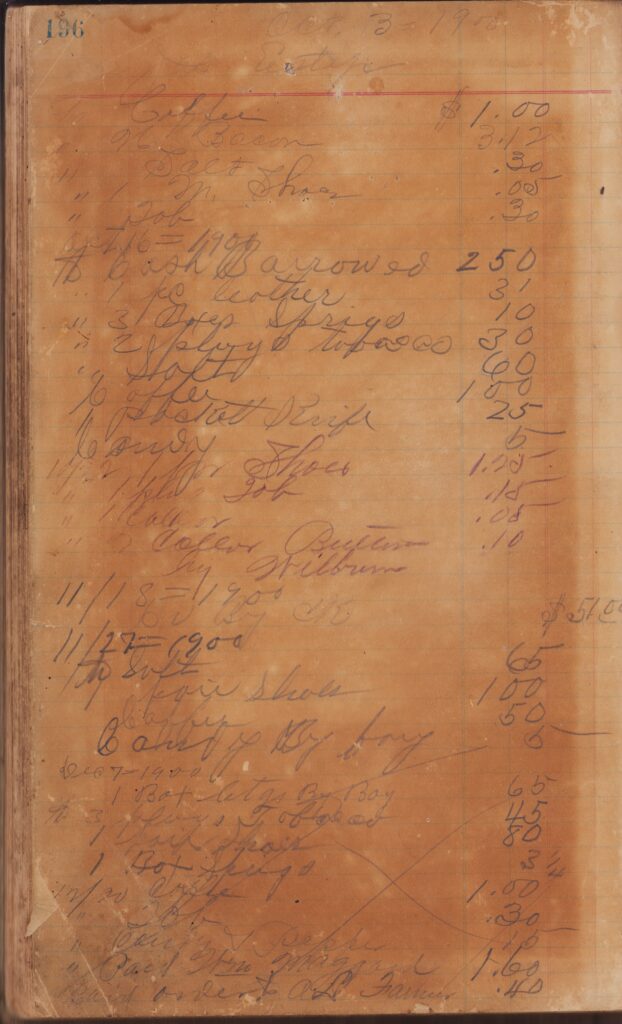 196
Oct. 3 = 1900
Estep
" Coffee $ 1.00
" Bacon 3.12
" Salt .30
" 1 Shoes .05
" Tob .30
Oct 16 = 1900
To Cash Barrowed 250
" 1 pc leather 31
" 3 Boxes Sprigs 10
" 2 plugs tobacco 30
" Salt 60
Coffee 100
" pockett Knife 25
Candy 5
1 pr Shoes 1.25
" 1 plug Tob .15
" 1 Collar .05
" 2 Collar Button .10
by Wilburn
11/18 = 1900
By $ 51.00
11/27 = 1900
To Salt 65
1 pair Shoes 100
Coffee 50
Candy By boy 5
Dec 7 - 1900
1 Box By Boy 65
To 3 plugs Tobacco 45
1 pair Shoes 80
1 Box Sprigs 3 1/4
12/20 Coffee 1.00
" Tob .30
" Peppe 10
" Paid Wm 1.60
Paid order to A.L. Farmer .40